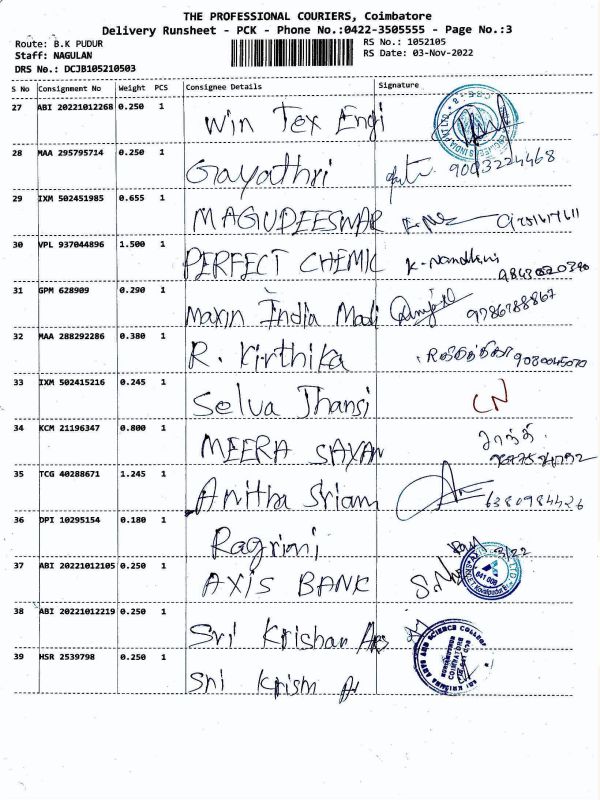 THE PROFESSIONAL COURIERS, Coimbatore
Delivery Runsheet - PCK - Phone No.:0422-3505555 - Page No.:3
Route: B.K PUDUR
RS No.: 1052105
Staff: NAGULAN
RS Date: 03-Nov-2022
DRS No.: DCJB105210503
S No Consignment No Weight PCS Consignee Details Signature
27 ABI 20221012268 0.250 1 Win Tex Engi
28 MAA 295795714 0.250 1 Gayathri 9003224468
29 IXM 502451985 0.655 1 MAGUDEESWAR
30 VPL 937044896 1.500 1 PERFECT CHEMIC K. Nandhini
31 GPM 628909 0.290 1 Maxin India Modi 9786788867
32 MAA 288292286 0.380 1 R. Kirthika
33 IXM 502415216 0.245 1 Selva Jhansi CN
34 KCM 21196347 0.800 1 MEERA SAYAN
35 TCG 40288671 1.245 1 Anitha Sriam 6380984426
36 DPI 10295154 0.180 1 Ragrini
37 ABI 20221012105 0.250 1 AXIS BANK
38 ABI 20221012219 0.250 1 Sri Krishan Ars
39 HSR 2539798 0.250 1 Sri Krish Ar